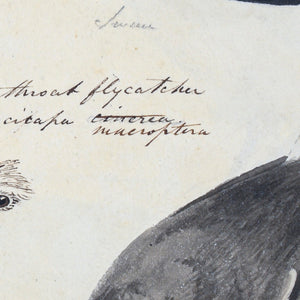 throat flycatcher
cicapa cinerea.
macroptera